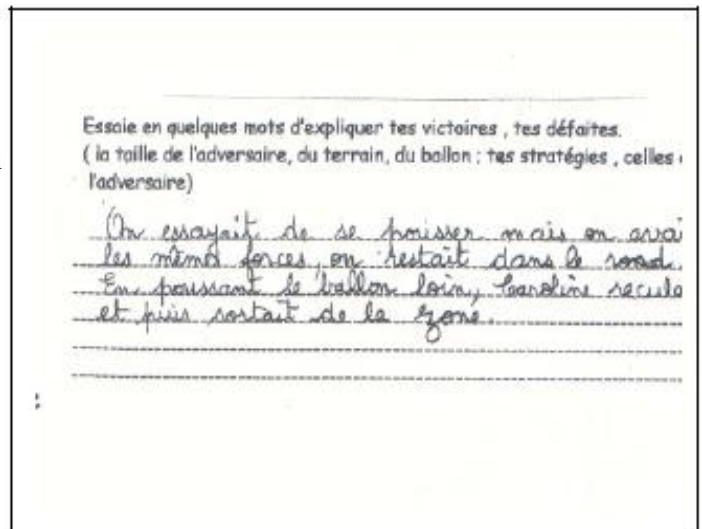 Essaie en quelques mots d'expliquer tes victoires , tes défaites.
( la taille de l'adversaire, du terrain, du ballon ; tes stratégies , celles
l'adversaire)
On essayait de se pousser mais on avai
les même forces, on restait dans le rond.
En poussant le ballon loin, Caroline recule
et puis sortait de la zone.